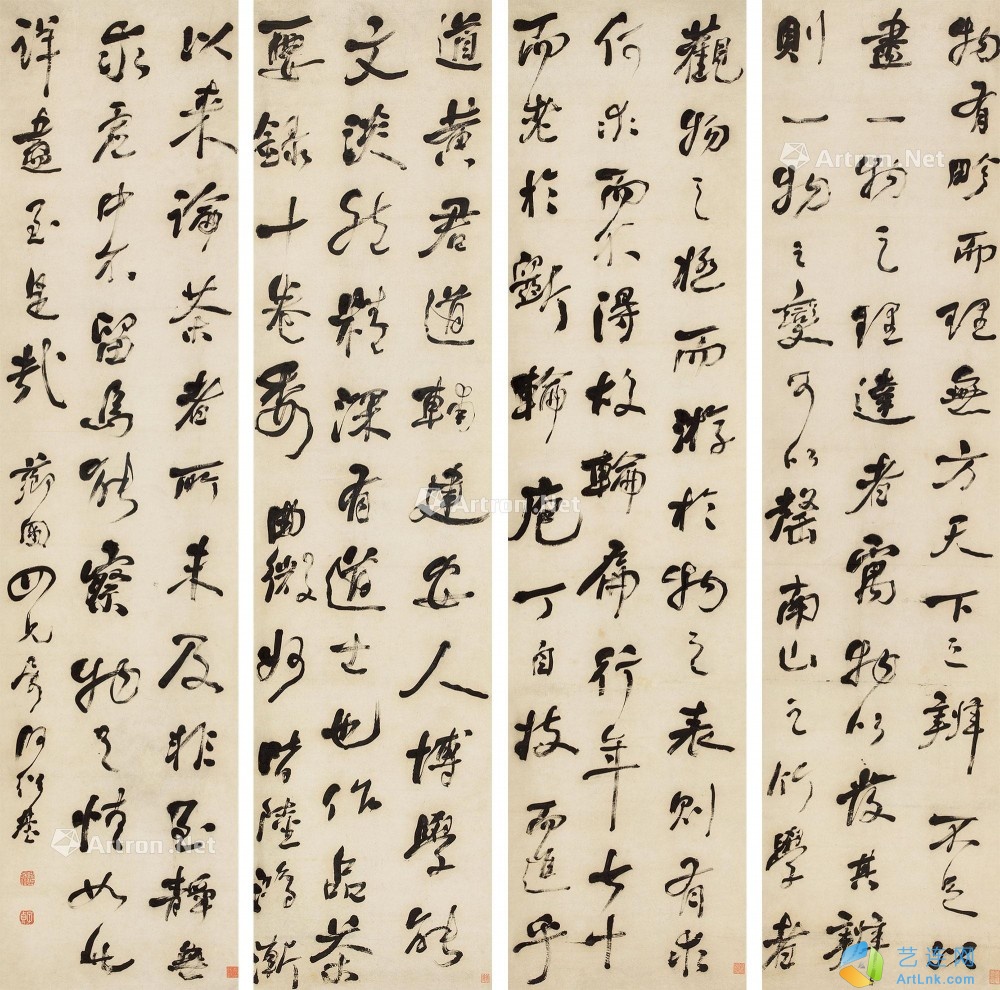 物有畛而理無方天下之辨不足以
盡一物之理達者寓物以發其辨
則一物之變可以罄南山之竹學者
觀物之極而游於物之表則有求
何求而不得故輪扁行年七十
而老於斲輪庖丁自技而進乎
道黄君道輔建安人博學能
文淡然精深有道之士也作品茶
要録十卷委曲微妙皆陸鴻漸
以来論茶者所未及非至靜無
求虚中不留烏能察物之情如此
詳盡至是哉
四兄属何紹基
Artron.Net
Artron.Net
Artron.Net
艺连网
ArtLnk.com